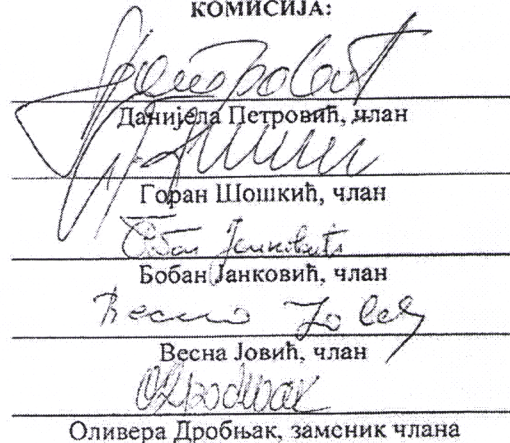 КОМИСИЈА:
Данијела Петровић, члан
Горан Шошкић, члан
Бобан Јанковић
Бобан Јанковић, члан
Весна Јовић, члан
Оливера Дробњак, замсник члана